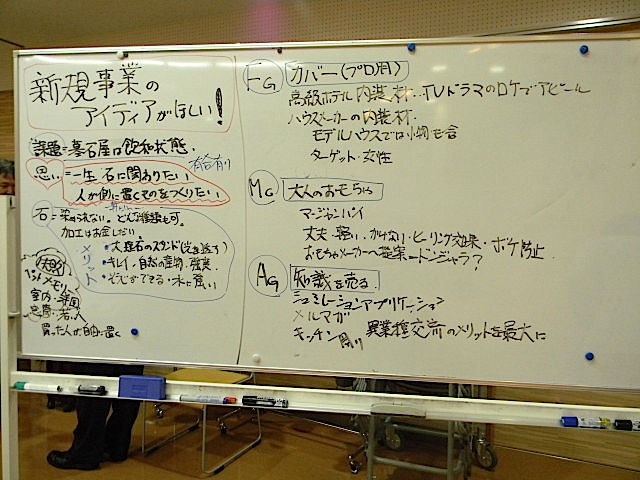 新規事業の
アイディアがほしい!
課題=墓石屋は飽和状態.
思い=一生石に関わりたい
人が側に置くものをつくりたい
石=
どんな種類も可.
加工はお金しだい
メリット
・大理石のスタンド
・キレイ,自然の産物,強裏
・そうじができる・水に強い
メモリー
室内
買った人が自由に置く
FG カバー(プロ用)
高級ホテル内装材・TVドラマのロケでアピール
ハウスメーカーの内装材.
モデルハウスでは小物も含
ターゲット・女性
MG 大人のおもちゃ
マージャンパイ
丈夫・強い・カケない・ヒーリング効果・ボケ防止
おもちゃメーカーへ提案=ドンジャラ?
AG 知識を売る
シュミレーションアプリケーション
メルマガ
キッチン周り
異業種交流のメリットを最大に